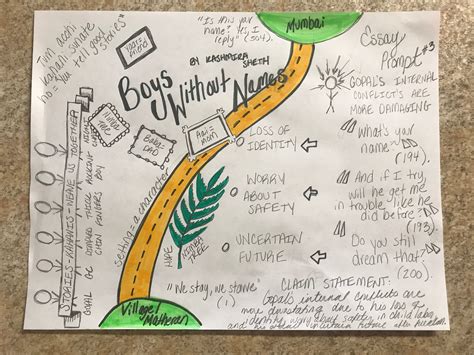 Tum acchi
kahani sunate
ho = You tell good
stories
"Is this your
name? Yes, I
reply" (304).
Mumbai
Essay
Prompt #3
GOPAL'S INTERNAL
CONFLICT'S ARE
MORE DAMAGING
BOYS
WITHOUT NAMES
BY KASHMIRA
SHETH
Baba=
DAD
Aai=
mom
LOSS OF
IDENTITY
"What's your
name?"
(194).
WORRY
ABOUT
SAFETY
"And if I try,
will he get me
in trouble, like he
did before?"
(193).
UNCERTAIN
FUTURE
"Do you still
dream that?"
(200).
Setting = a character
HOPE
NEEM
TREE
STORIES - KAHANIS - WEAVE US TOGETHER
GOPAL
"We stay, we starve"
(1)
Village/
Matheran
CLAIM STATEMENT:
Gopal's internal conflicts are
more devastating due to his loss of
identity, worry about safety in child labor,
and his uncertain future after freedom.